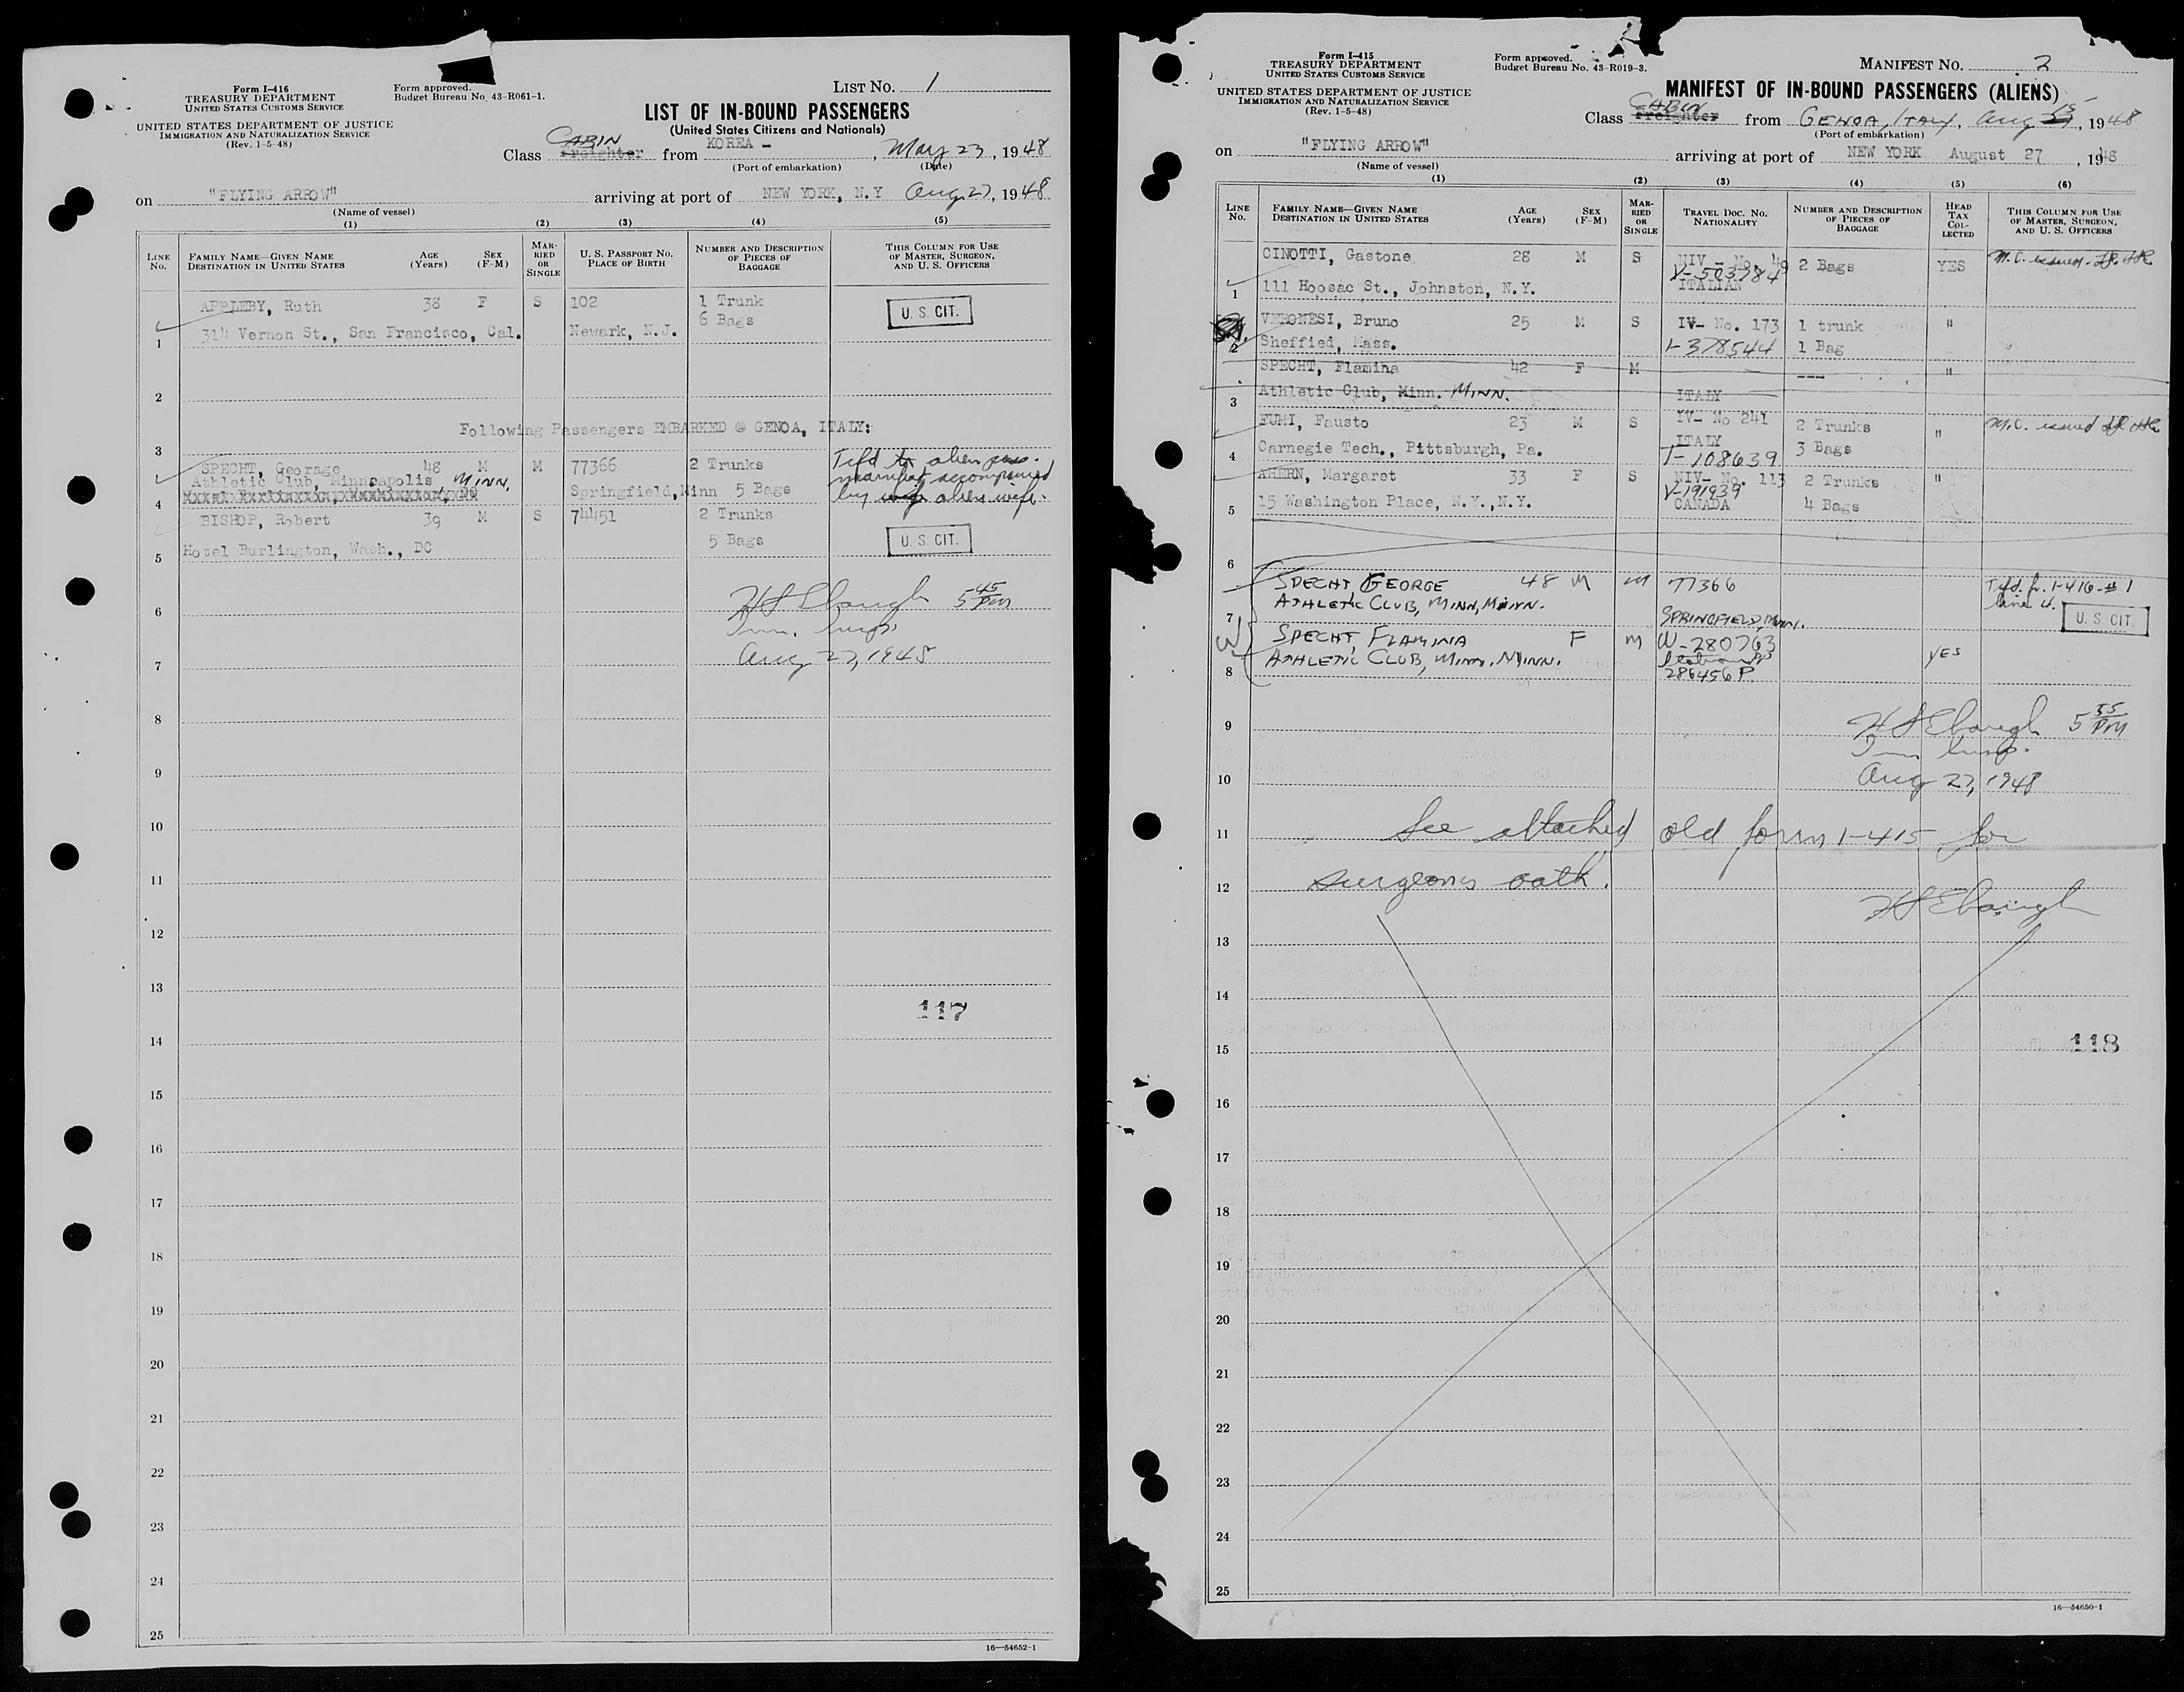 Form I-416
TREASURY DEPARTMENT
UNITED STATES CUSTOMS SERVICE
UNITED STATES DEPARTMENT OF JUSTICE
IMMIGRATION AND NATURALIZATION SERVICE
(Rev. 1-5-48)
Form approved.
Budget Bureau No. 43-R061-1.
LIST NO. 1
LIST OF IN-BOUND PASSENGERS
(United States Citizens and Nationals)
CABIN
Class Freighter from KOREA - , May 23, 1948
(Port of embarkation) (Date)
on "FLYING ARROW" arriving at port of NEW YORK, N.Y Aug 27, 1948
(Name of vessel)
(1) (2) (3) (4) (5)
LINE No. FAMILY NAME—GIVEN NAME DESTINATION IN UNITED STATES AGE (Years) SEX (F-M) MARRIED OR SINGLE U. S. PASSPORT NO. PLACE OF BIRTH NUMBER AND DESCRIPTION OF PIECES OF BAGGAGE THIS COLUMN FOR USE OF MASTER, SURGEON, AND U. S. OFFICERS
APPLEBY, Ruth 38 F S 102 1 Trunk
6 Bags U. S. CIT.
1 314 Vernon St., San Francisco, Cal. Newark, N.J.
2
Following Passengers EMBARKED @ GENOA, ITALY:
3
SPECHT, Georage 48 M M 77366 2 Trunks Tifd to alien pass.
Athletic Club, Minneapolis, MINN. manifest accompanied
4 Springfield, Minn 5 Bags by alien wife.
BISHOP, Robert 39 M S 74451 2 Trunks
5 Bags U. S. CIT.
5 Hotel Burlington, Wash., DC
H S Ebaugh 5 45 PM
6
Imm. Insp.
Aug 27, 1948
7
8
9
10
11
12
13
117
14
15
16
17
18
19
20
21
22
23
24
25
16—54652-1
Form I-415
TREASURY DEPARTMENT
UNITED STATES CUSTOMS SERVICE
UNITED STATES DEPARTMENT OF JUSTICE
IMMIGRATION AND NATURALIZATION SERVICE
(Rev. 1-5-48)
Form approved.
Budget Bureau No. 43-R019-3.
MANIFEST NO. 2
MANIFEST OF IN-BOUND PASSENGERS (ALIENS)
CABIN
Class Freighter from GENOA, ITALY, Aug 15, 1948
(Port of embarkation)
on "FLYING ARROW" arriving at port of NEW YORK August 27, 1948
(Name of vessel)
(1) (2) (3) (4) (5) (6)
LINE No. FAMILY NAME—GIVEN NAME DESTINATION IN UNITED STATES AGE (Years) SEX (F-M) MARRIED OR SINGLE TRAVEL DOC. NO. NATIONALITY NUMBER AND DESCRIPTION OF PIECES OF BAGGAGE HEAD TAX COLLECTED THIS COLUMN FOR USE OF MASTER, SURGEON, AND U. S. OFFICERS
CINOTTI, Gastone 28 M S NIV - No. 49 2 Bags YES M.C. issued
V-503784
1 111 Hoosac St., Johnston, N.Y. ITALIAN
VERONESI, Bruno 25 M S IV- No. 173 1 trunk "
2 Sheffied, Mass. 1-378544 1 Bag
SPECHT, Flamina 42 F M --- "
3 Athletic Club, Minn. MINN. ITALY
FUMI, Fausto 23 M S IV- No 241 2 Trunks " M.C. issued
ITALY
4 Carnegie Tech., Pittsburgh, Pa. T-108639 3 Bags
AHERN, Margaret 33 F S NIV- No. 113 2 Trunks "
V-191939
5 15 Washington Place, N.Y.,N.Y. CANADA 4 Bags
6
SPECHT GEORGE 48 M M 77366 Tifd. fr. I-416-#1
ATHLETIC CLUB, MINN, MINN. line 4.
7 SPRINGFIELD, MINN. U. S. CIT.
SPECHT, FLAMINA F M W-280763
ATHLETIC CLUB, MINN, MINN. YES
8 286456 P
9 H S Ebaugh 5 55 PM
Imm Insp.
10 Aug 27, 1948
11 See attached old form I-415 for
12 surgeons oath.
H S Ebaugh
13
14
15 118
16
17
18
19
20
21
22
23
24
25
16—54650-1